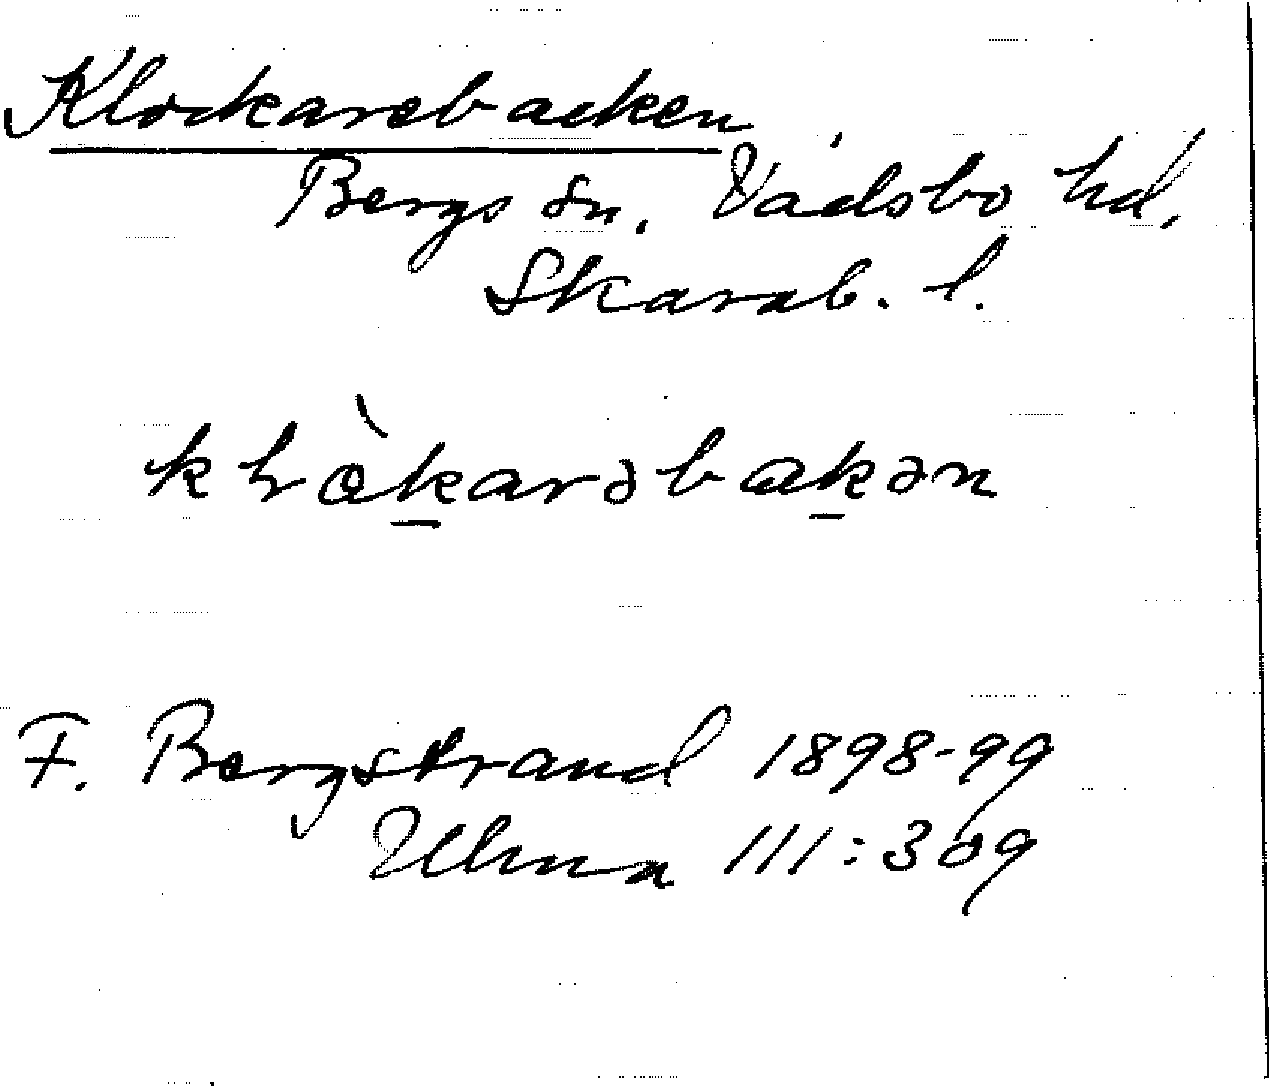 Klockarebacken
Bergs sn. Vadsbo hd.
Skarab. l.
kḷòkarəbakən
F. Bergstrand 1898-99
Ulma 111:309